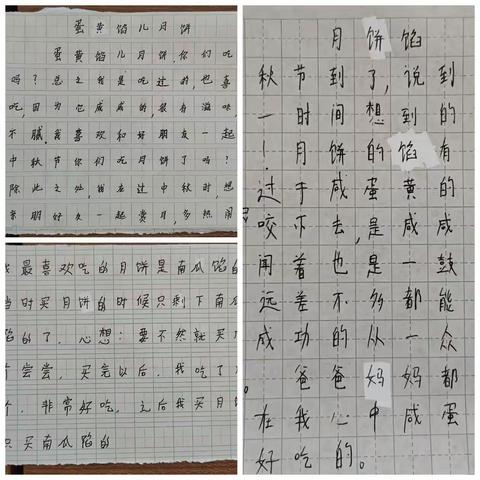 蛋黄馅儿月饼
蛋黄馅儿月饼,你们吃
吗?总之我是吃过的,也喜
吃,因为它咸咸的很有滋味,
不腻。我喜欢和好朋友一起
中秋节你们吃月饼了吗?
除此之外,我在过中秋时,想
亲朋好友一起赏月,多热闹
最喜欢吃的月饼是南瓜馅的
当时买月饼的时候只剩下南瓜
馅的了。心想:要不然就买
尝尝,买完以后,我吃了
个,非常好吃,之后我买月饼
只买南瓜馅的
月饼馅
秋节到了,说到
一时间想到的
!月饼的馅有
过于咸蛋黄的
咬下去,是咸咸
闻着也是一鼓
远差不多都能
成功的从一众
爸爸妈妈都
在我心中咸蛋
好吃的。